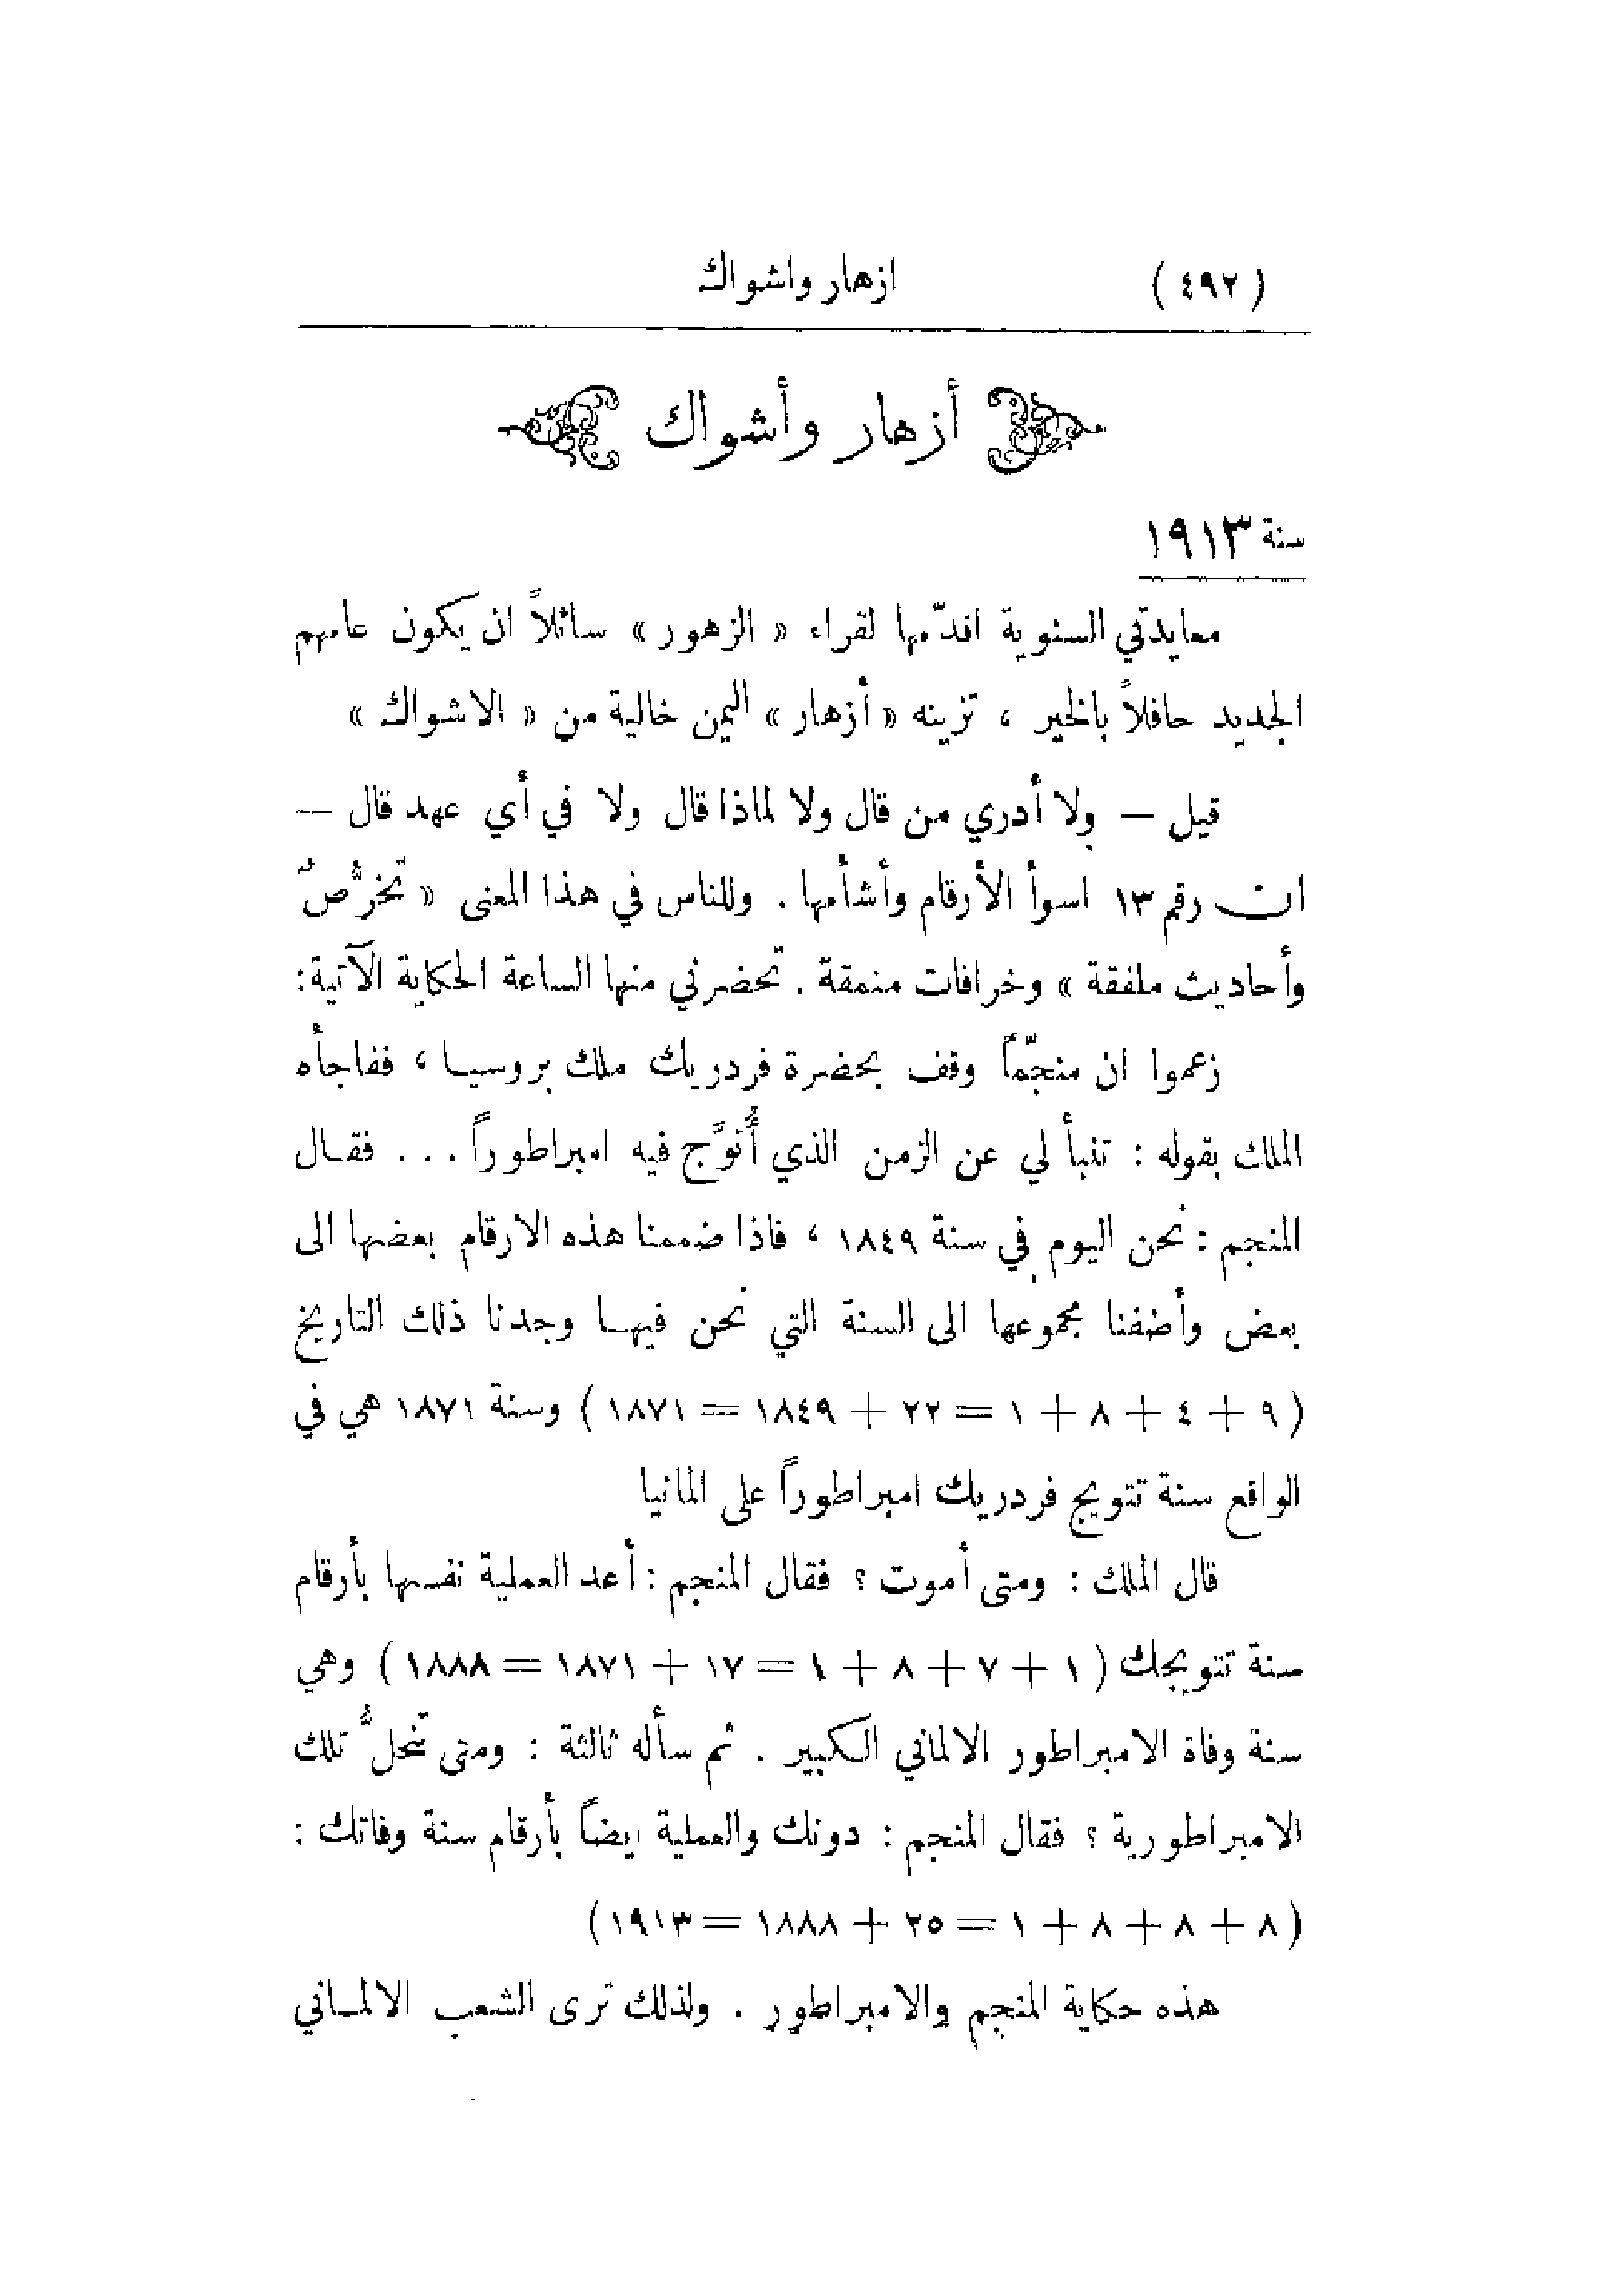 (٤٩٢) ازهار واشواك
أزهار وأشواك
سنة ١٩١٣
معايدتي السنوية اقدّمها لقراء « الزهور » سائلاً ان يكون عامهم
الجديد حافلاً بالخير ، تزينه « أزهار » اليمن خالية من « الاشواك »
قيل — ولا أدري من قال ولا لماذا قال ولا في أي عهد قال —
ان رقم ١٣ اسوأ الأرقام وأشأمها . وللناس في هذا المعنى « تخرُّصٌ
وأحاديث ملفقة » وخرافات منمقة . تحضرني منها الساعة الحكاية الآتية:
زعموا ان منجّماً وقف بحضرة فردريك ملك بروسيا ، ففاجأه
الملك بقوله : تنبأ لي عن الزمن الذي أُتوَّج فيه امبراطوراً . . . فقال
المنجم : نحن اليوم في سنة ١٨٤٩ ، فاذا ضممنا هذه الارقام بعضها الى
بعض وأضفنا مجموعها الى السنة التي نحن فيها وجدنا ذلك التاريخ
(٩ + ٤ + ٨ + ١ = ٢٢ + ١٨٤٩ = ١٨٧١) وسنة ١٨٧١ هي في
الواقع سنة تتويج فردريك امبراطوراً على المانيا
قال الملك : ومتى أموت ؟ فقال المنجم : أعد العملية نفسها بأرقام
سنة تتويجك (١ + ٧ + ٨ + ١ = ١٧ + ١٨٧١ = ١٨٨٨) وهي
سنة وفاة الامبراطور الالماني الكبير . ثم سأله ثالثة : ومتى تنحلُّ تلك
الامبراطورية ؟ فقال المنجم : دونك والعملية ايضاً بأرقام سنة وفاتك :
(٨ + ٨ + ٨ + ١ = ٢٥ + ١٨٨٨ = ١٩١٣)
هذه حكاية المنجم والامبراطور . ولذلك ترى الشعب الالماني